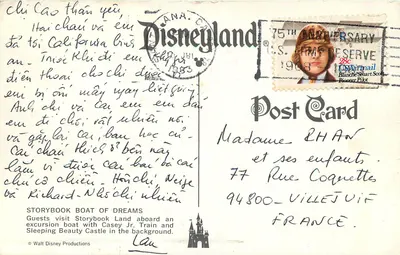 Chi Cao thân yêu
Hai cháu và em
đã tới California bình
an. Trước khi đi em
điện thoại cho chị được
em bị ốn mấy may liết quýnh
Anh chị và các em em đưa
đi chơi rất nhiều nơi
và gặp lại các bạn học cũ.
Các cháu thích ở bên này
lắm vì được các bác, cô các
chú cô chiều. Hôn chị, Neige
và Richard - Nhớ chị nhiều
Lan
STORYBOOK BOAT OF DREAMS
Guests visit Storybook Land aboard an
excursion boat with Casey Jr. Train and
Sleeping Beauty Castle in the background.
© Walt Disney Productions
Disneyland
ANA, C
1983
75TH ANNIVERSARY
U.S. ARMY RESERVE
USAirmail
Blanche Stuart Scott
Pioneer Pilot
Post Card
Madame PHAN
et ses enfants.
77 Rue Coquettes
94800 - VILLEJUIF
FRANCE.